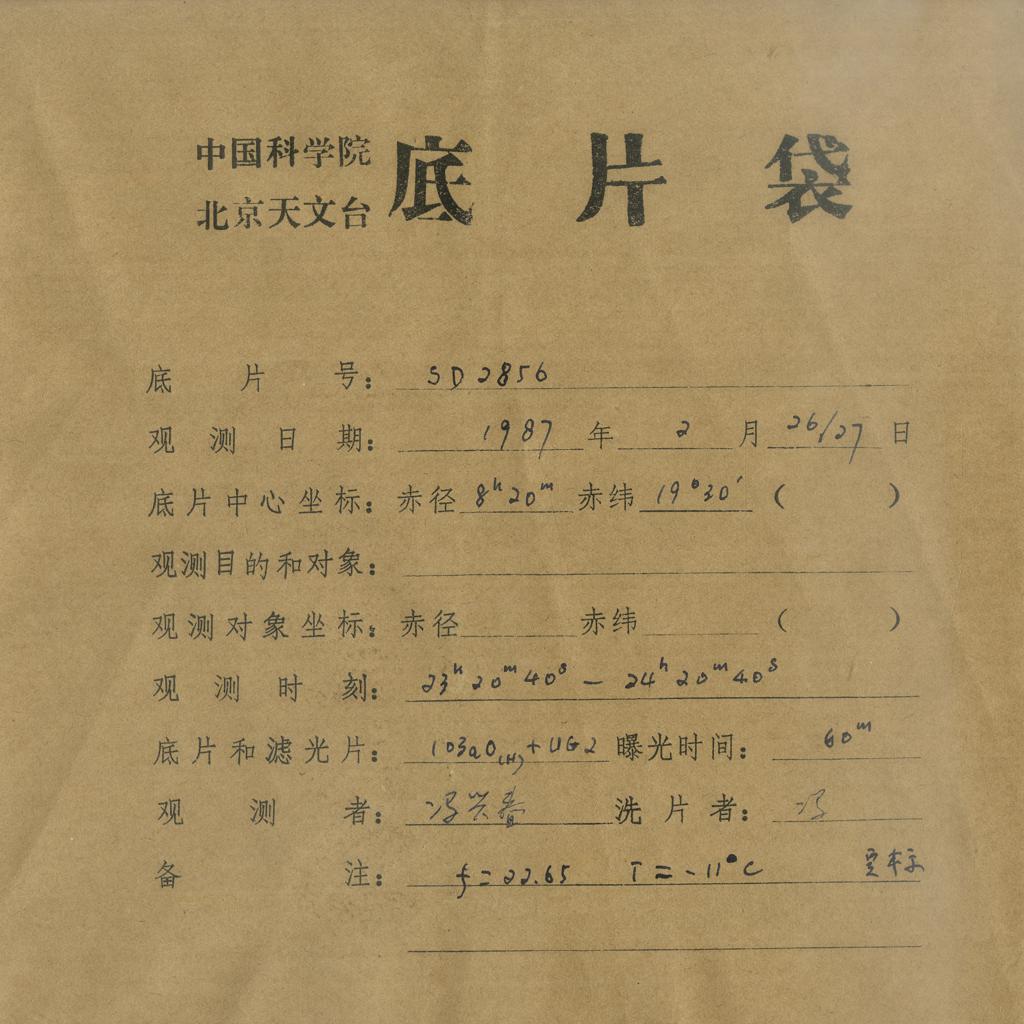 中国科学院
北京天文台
底片袋
底片号： SD2856
观测日期： 1987年 2月 26/27日
底片中心坐标：赤径 8ʰ20ᵐ 赤纬 19°30′ （ ）
观测目的和对象：
观测对象坐标：赤径 赤纬 （ ）
观测时刻： 23ʰ20ᵐ40ˢ — 24ʰ20ᵐ40ˢ
底片和滤光片： 103aO(H)+UG2 曝光时间： 60ᵐ
观测者： 冯兴春 洗片者： 冯
备注： f=22.65 T=-11°C